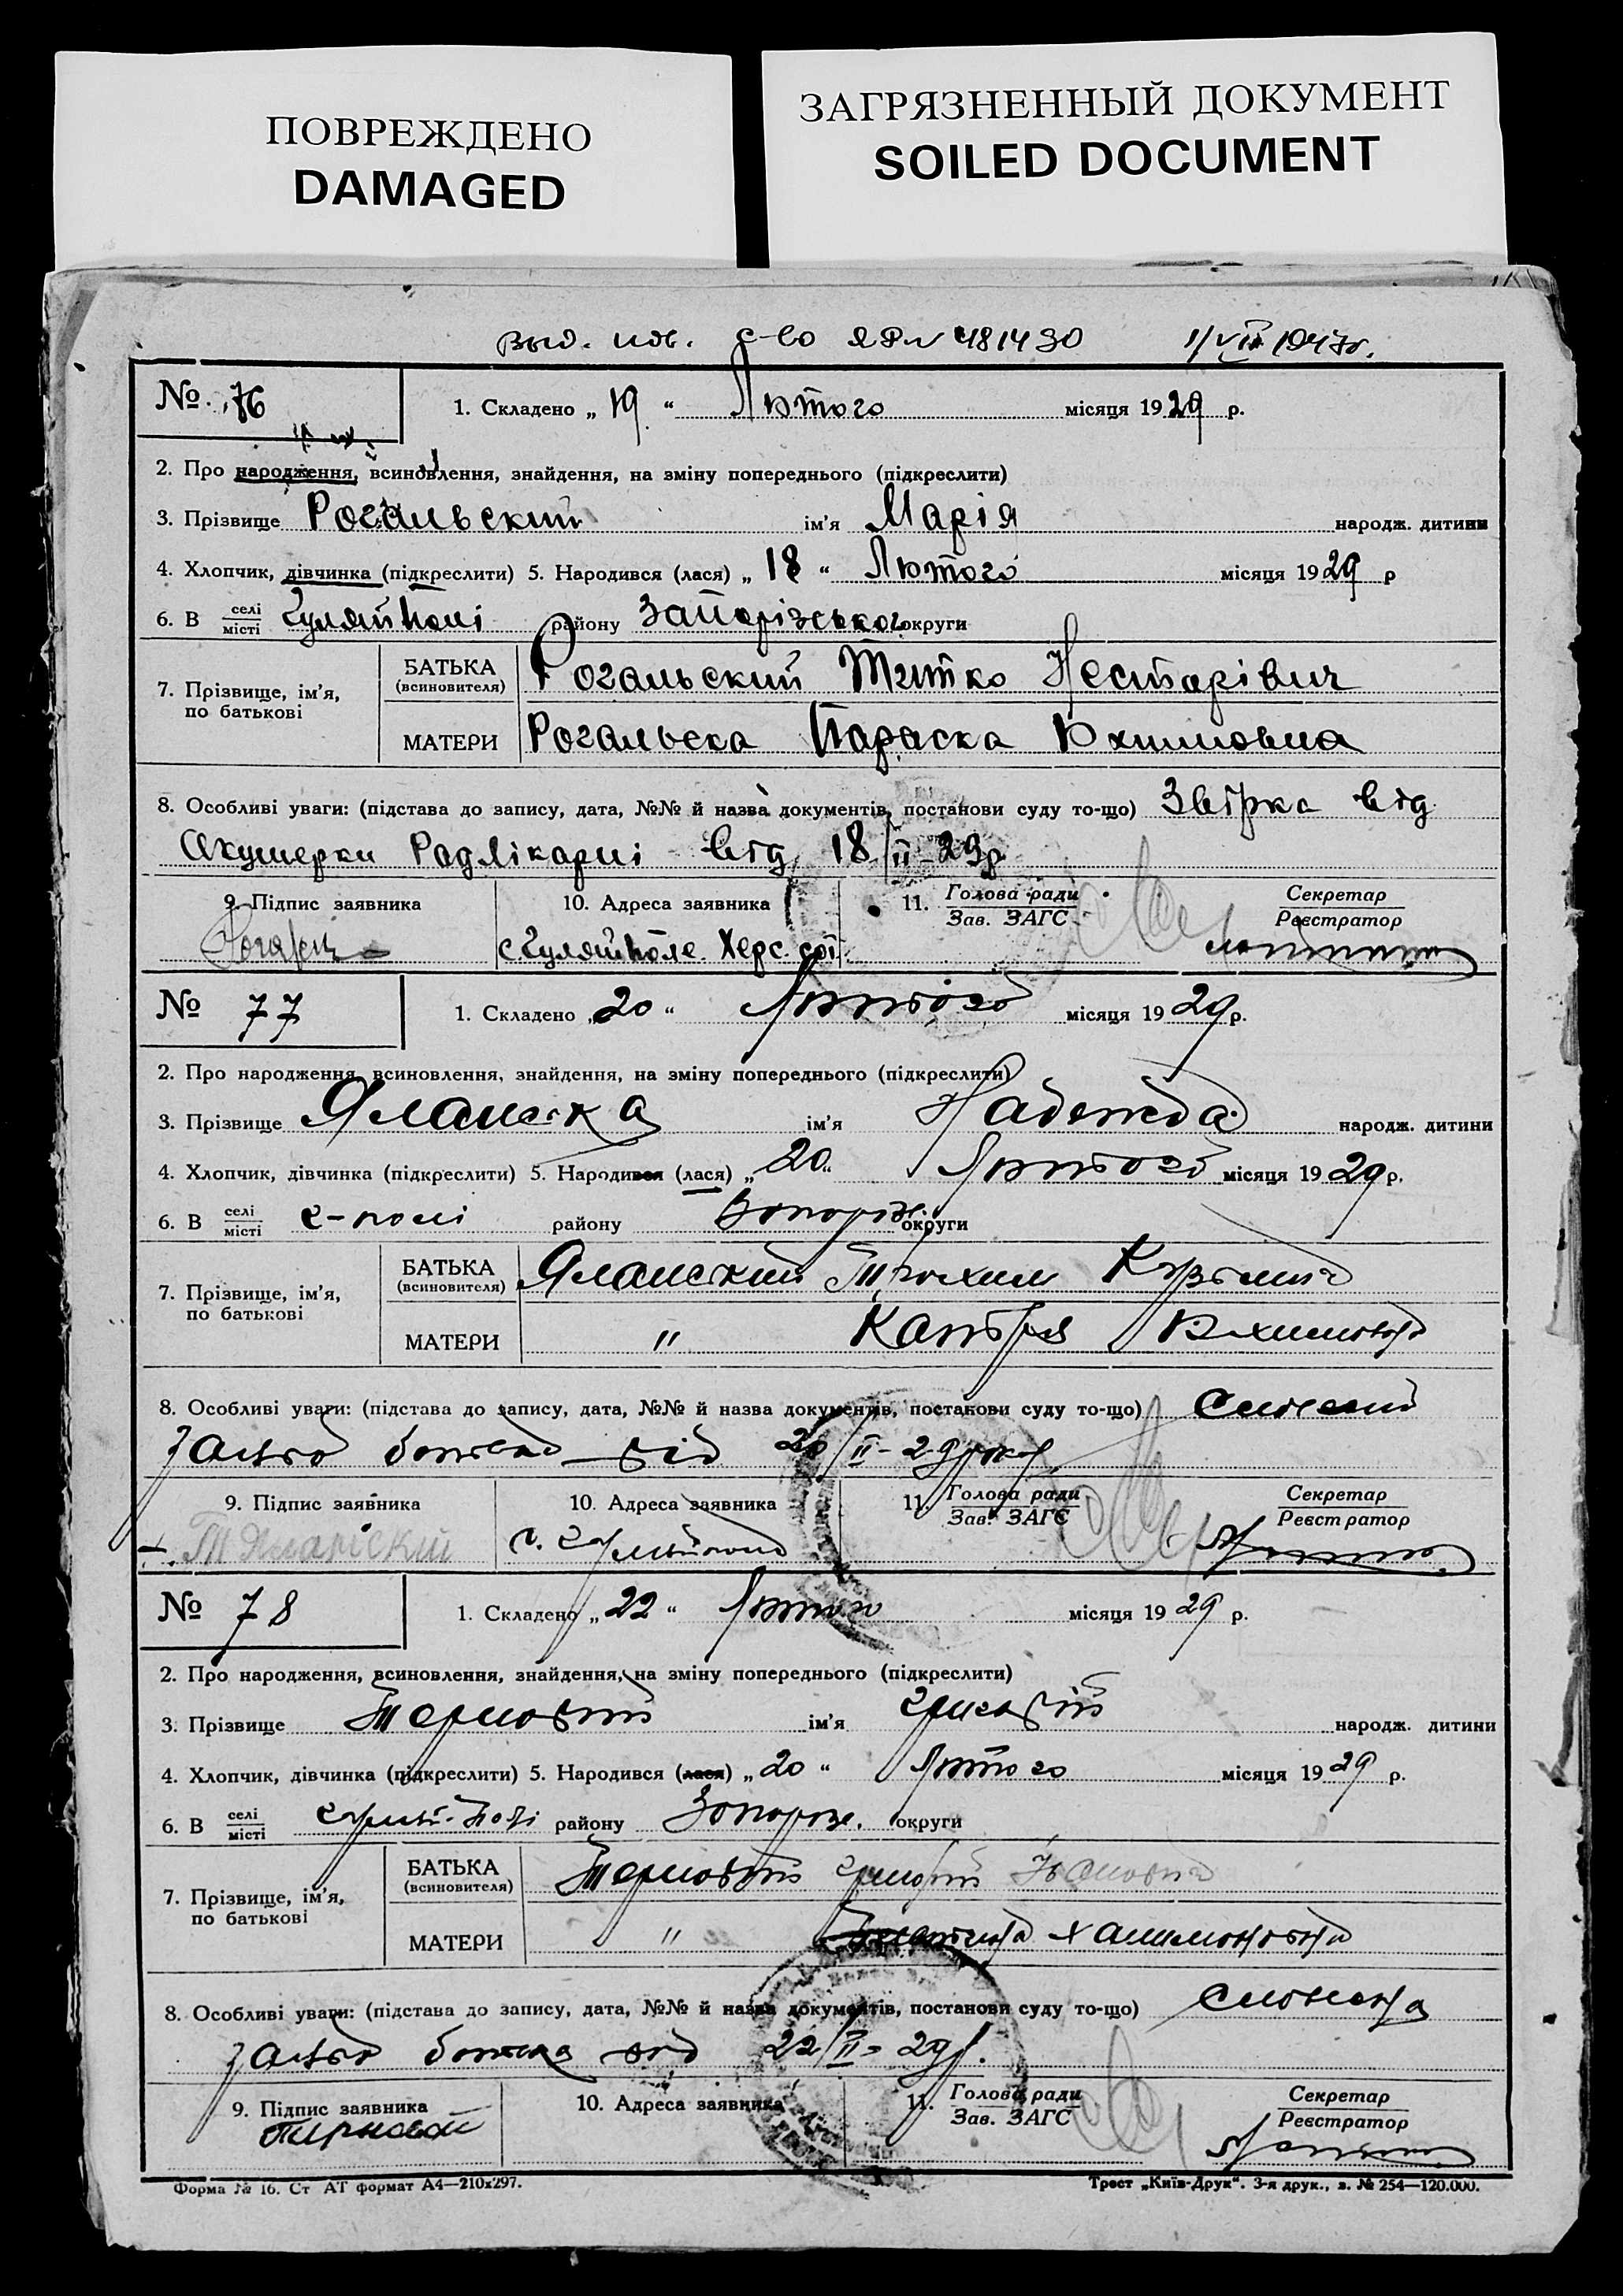 ПОВРЕЖДЕНО
DAMAGED
ЗАГРЯЗНЕННЫЙ ДОКУМЕНТ
SOILED DOCUMENT
выд. с-во 481430 1/VII 1947г.
№ 76
1. Складено „ 19 “ Лютого місяця 1929 р.
2. Про народження, всиновлення, знайдення, на зміну попереднього (підкреслити)
3. Прізвище Рогальский ім'я Марія народж. дитини
4. Хлопчик, дівчинка (підкреслити) 5. Народився (лася) „ 18 “ Лютого місяця 1929 р
6. В селі місті Гуляйполі району Запорізького округи
7. Прізвище, ім'я, по батькові
БАТЬКА (всиновителя) Рогальский Титко Несторівич
МАТЕРИ Рогальска Параска Юхимовна
8. Особливі уваги: (підстава до запису, дата, №№ й назва документів, постанови суду то-що) Звірка від
Акушерки Радлікарні від 18/II-29р
9. Підпис заявника
10. Адреса заявника
11. Голова ради Зав. ЗАГС
Секретар Реєстратор
с. Гуляйполе Херс.
№ 77
1. Складено „ 20 “ Лютого місяця 1929 р.
2. Про народження, всиновлення, знайдення, на зміну попереднього (підкреслити)
3. Прізвище Яланська ім'я Надежда народж. дитини
4. Хлопчик, дівчинка (підкреслити) 5. Народився (лася) „ 20 “ Лютого місяця 1929 р.
6. В селі місті Г-полі району Запорізь округи
7. Прізвище, ім'я, по батькові
БАТЬКА (всиновителя) Яланский Трохим Кузьмич
МАТЕРИ " Катря Юхимовна
8. Особливі уваги: (підстава до запису, дата, №№ й назва документів, постанови суду то-що)
заява батька від 20/II-29 року
9. Підпис заявника
10. Адреса заявника
11. Голова ради Зав. ЗАГС
Секретар Реєстратор
Т Яланский с. Гуляйполе
№ 78
1. Складено „ 22 “ Лютого місяця 1929 р.
2. Про народження, всиновлення, знайдення, на зміну попереднього (підкреслити)
3. Прізвище Терновый ім'я народж. дитини
4. Хлопчик, дівчинка (підкреслити) 5. Народився (лася) „ 20 “ Лютого місяця 1929 р.
6. В селі місті Гуляй-Полі району Запоріз. округи
7. Прізвище, ім'я, по батькові
БАТЬКА (всиновителя) Терновый Іванович
МАТЕРИ "
8. Особливі уваги: (підстава до запису, дата, №№ й назва документів, постанови суду то-що) Словесна
заява батька від 22/II-29р.
9. Підпис заявника
10. Адреса заявника
11. Голова ради Зав. ЗАГС
Секретар Реєстратор
Терновой
Форма № 16. Ст АТ формат А4—210х297.
Трест „Київ-Друк“. 3-я друк., з. № 254—120.000.